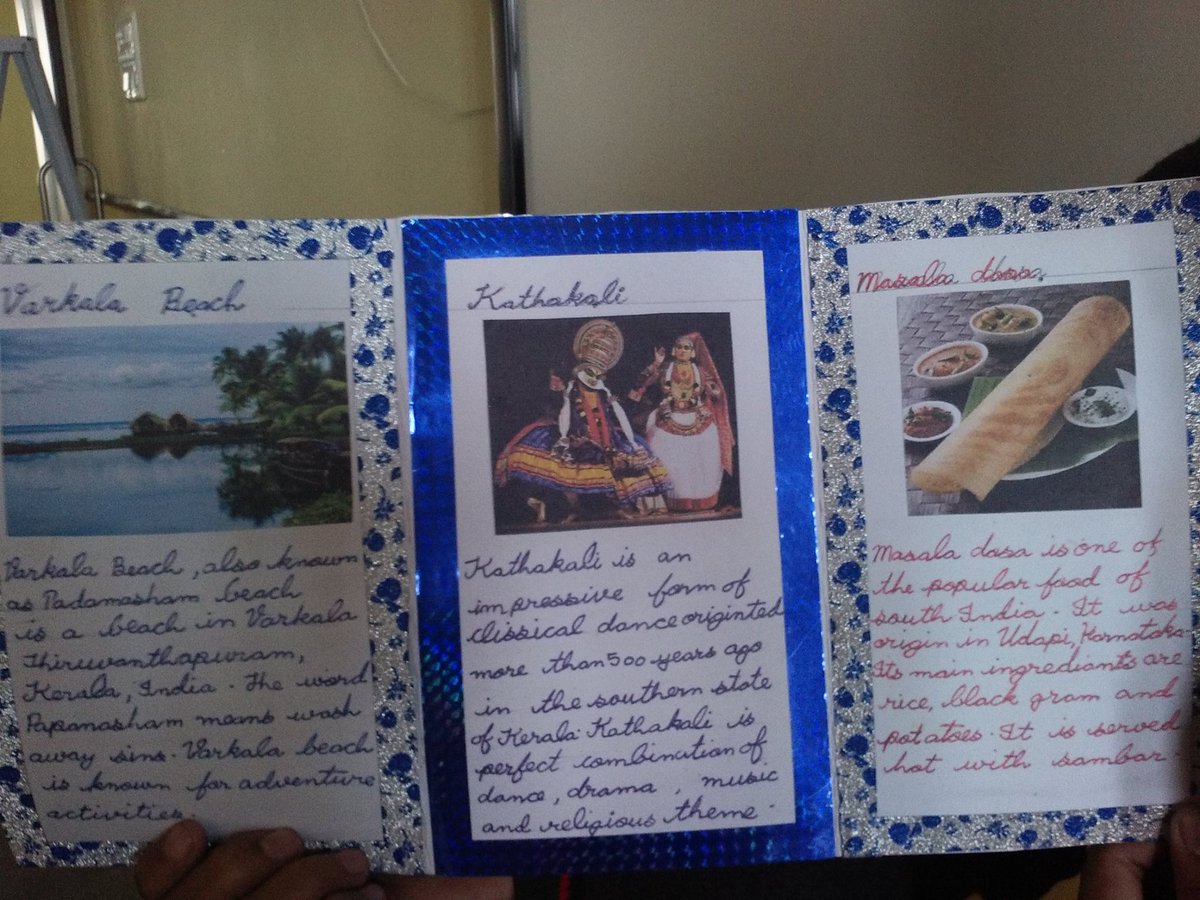 Varkala Beach
Varkala Beach, also known
as Padamasham beach
is a beach in Varkala
Thiruvanthapuram,
Kerala, India. The word
Papanasham means wash
away sins. Varkala beach
is known for adventure
activities.
Kathakali
Kathakali is an
impressive form of
classical dance originted
more than 500 years ago
in the southern state
of Kerala. Kathakali is
perfect combination of
dance, drama, music
and religious theme.
Masalla dosa.
Masala dosa is one of
the popular food of
south India. It was
origin in Udapi, Karnataka.
Its main ingrediants are
rice, black gram and
potatoes. It is served
hot with sambar